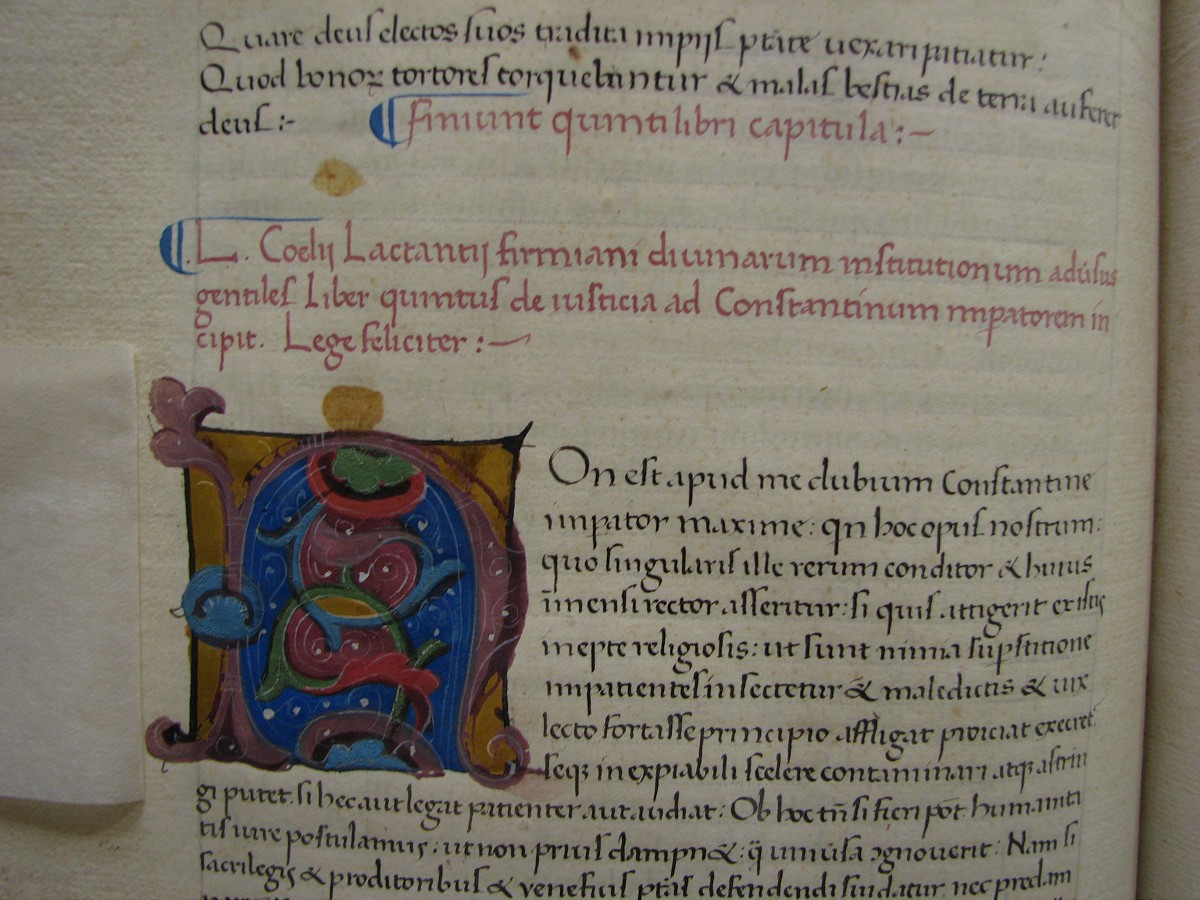 Quare deus electos suos tradita impijs ptāte uexari patiatur:
Quod bonoꝝ tortores torquebuntur & malas bestias de terra auferet
deus:-
finiunt quinti libri capitula:-
L. Coelij Lactantij firmiani diuinarum institutionum adūsus
gentiles Liber quintus de iusticia ad Constantinum impatorem in
cipit. Lege feliciter:-
On est apud me dubium Constantine
impator maxime: qn hoc opus nostrum:
quo singularis ille rerum conditor & huius
īmensi rector asseritur: si quis attigerit ex istis
inepte religiosis: ut sunt nimia supstitione
impatientes insectetur & maledictis & uix
lecto fortasse principio affligat proiciat execret
seqꝫ inexpiabili scelere contaminari atqꝫ astrin
gi putet. si hec aut legat patienter aut audiat: Ob hoc tn̄ si fieri pōt humanita
tis iure postulamus: ut non prius dampn&: q̄ uniūsa ꝯgnouerit: Nam si
sacrilegis & proditoribus & ueneficis ptās defendendi sui datur nec predam